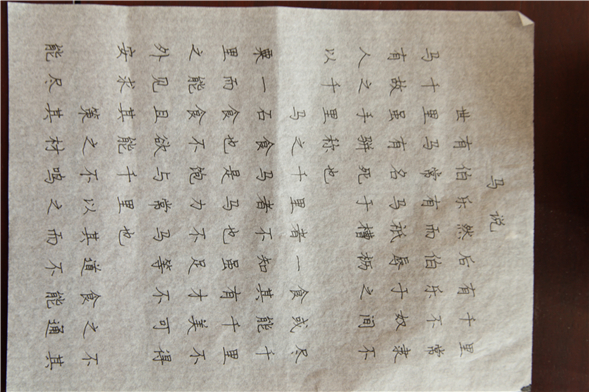 马说
世有伯乐然后有千里
马千里马常有而伯乐不常
有故虽有名马祇辱于奴隶
人之手骈死于槽枥之间不
以千里称也
马之千里者一食或尽
粟一石食马者不知其能千
里而食也是马也虽有千里
之能食不饱力不足才美不
外见且欲与常马等不可得
安求其能千里也
策之不以其道食之不
能尽其材鸣之而不能通其